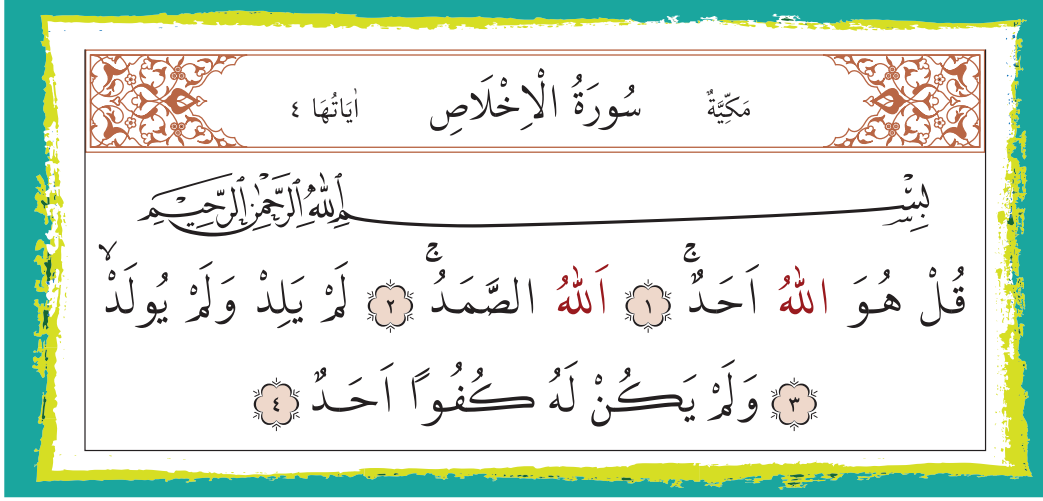 مَكِّيَّةٌ سُورَةُ الْاِخْلَاصِ اٰيَاتُهَا ٤
بِسْمِ اللّٰهِ الرَّحْمٰنِ الرَّحِيمِ
قُلْ هُوَ اللّٰهُ اَحَدٌۚ ١ اَللّٰهُ الصَّمَدُۚ ٢ لَمْ يَلِدْ وَلَمْ يُولَدْۙ
٣ وَلَمْ يَكُنْ لَهُ كُفُوًا اَحَدٌ ٤